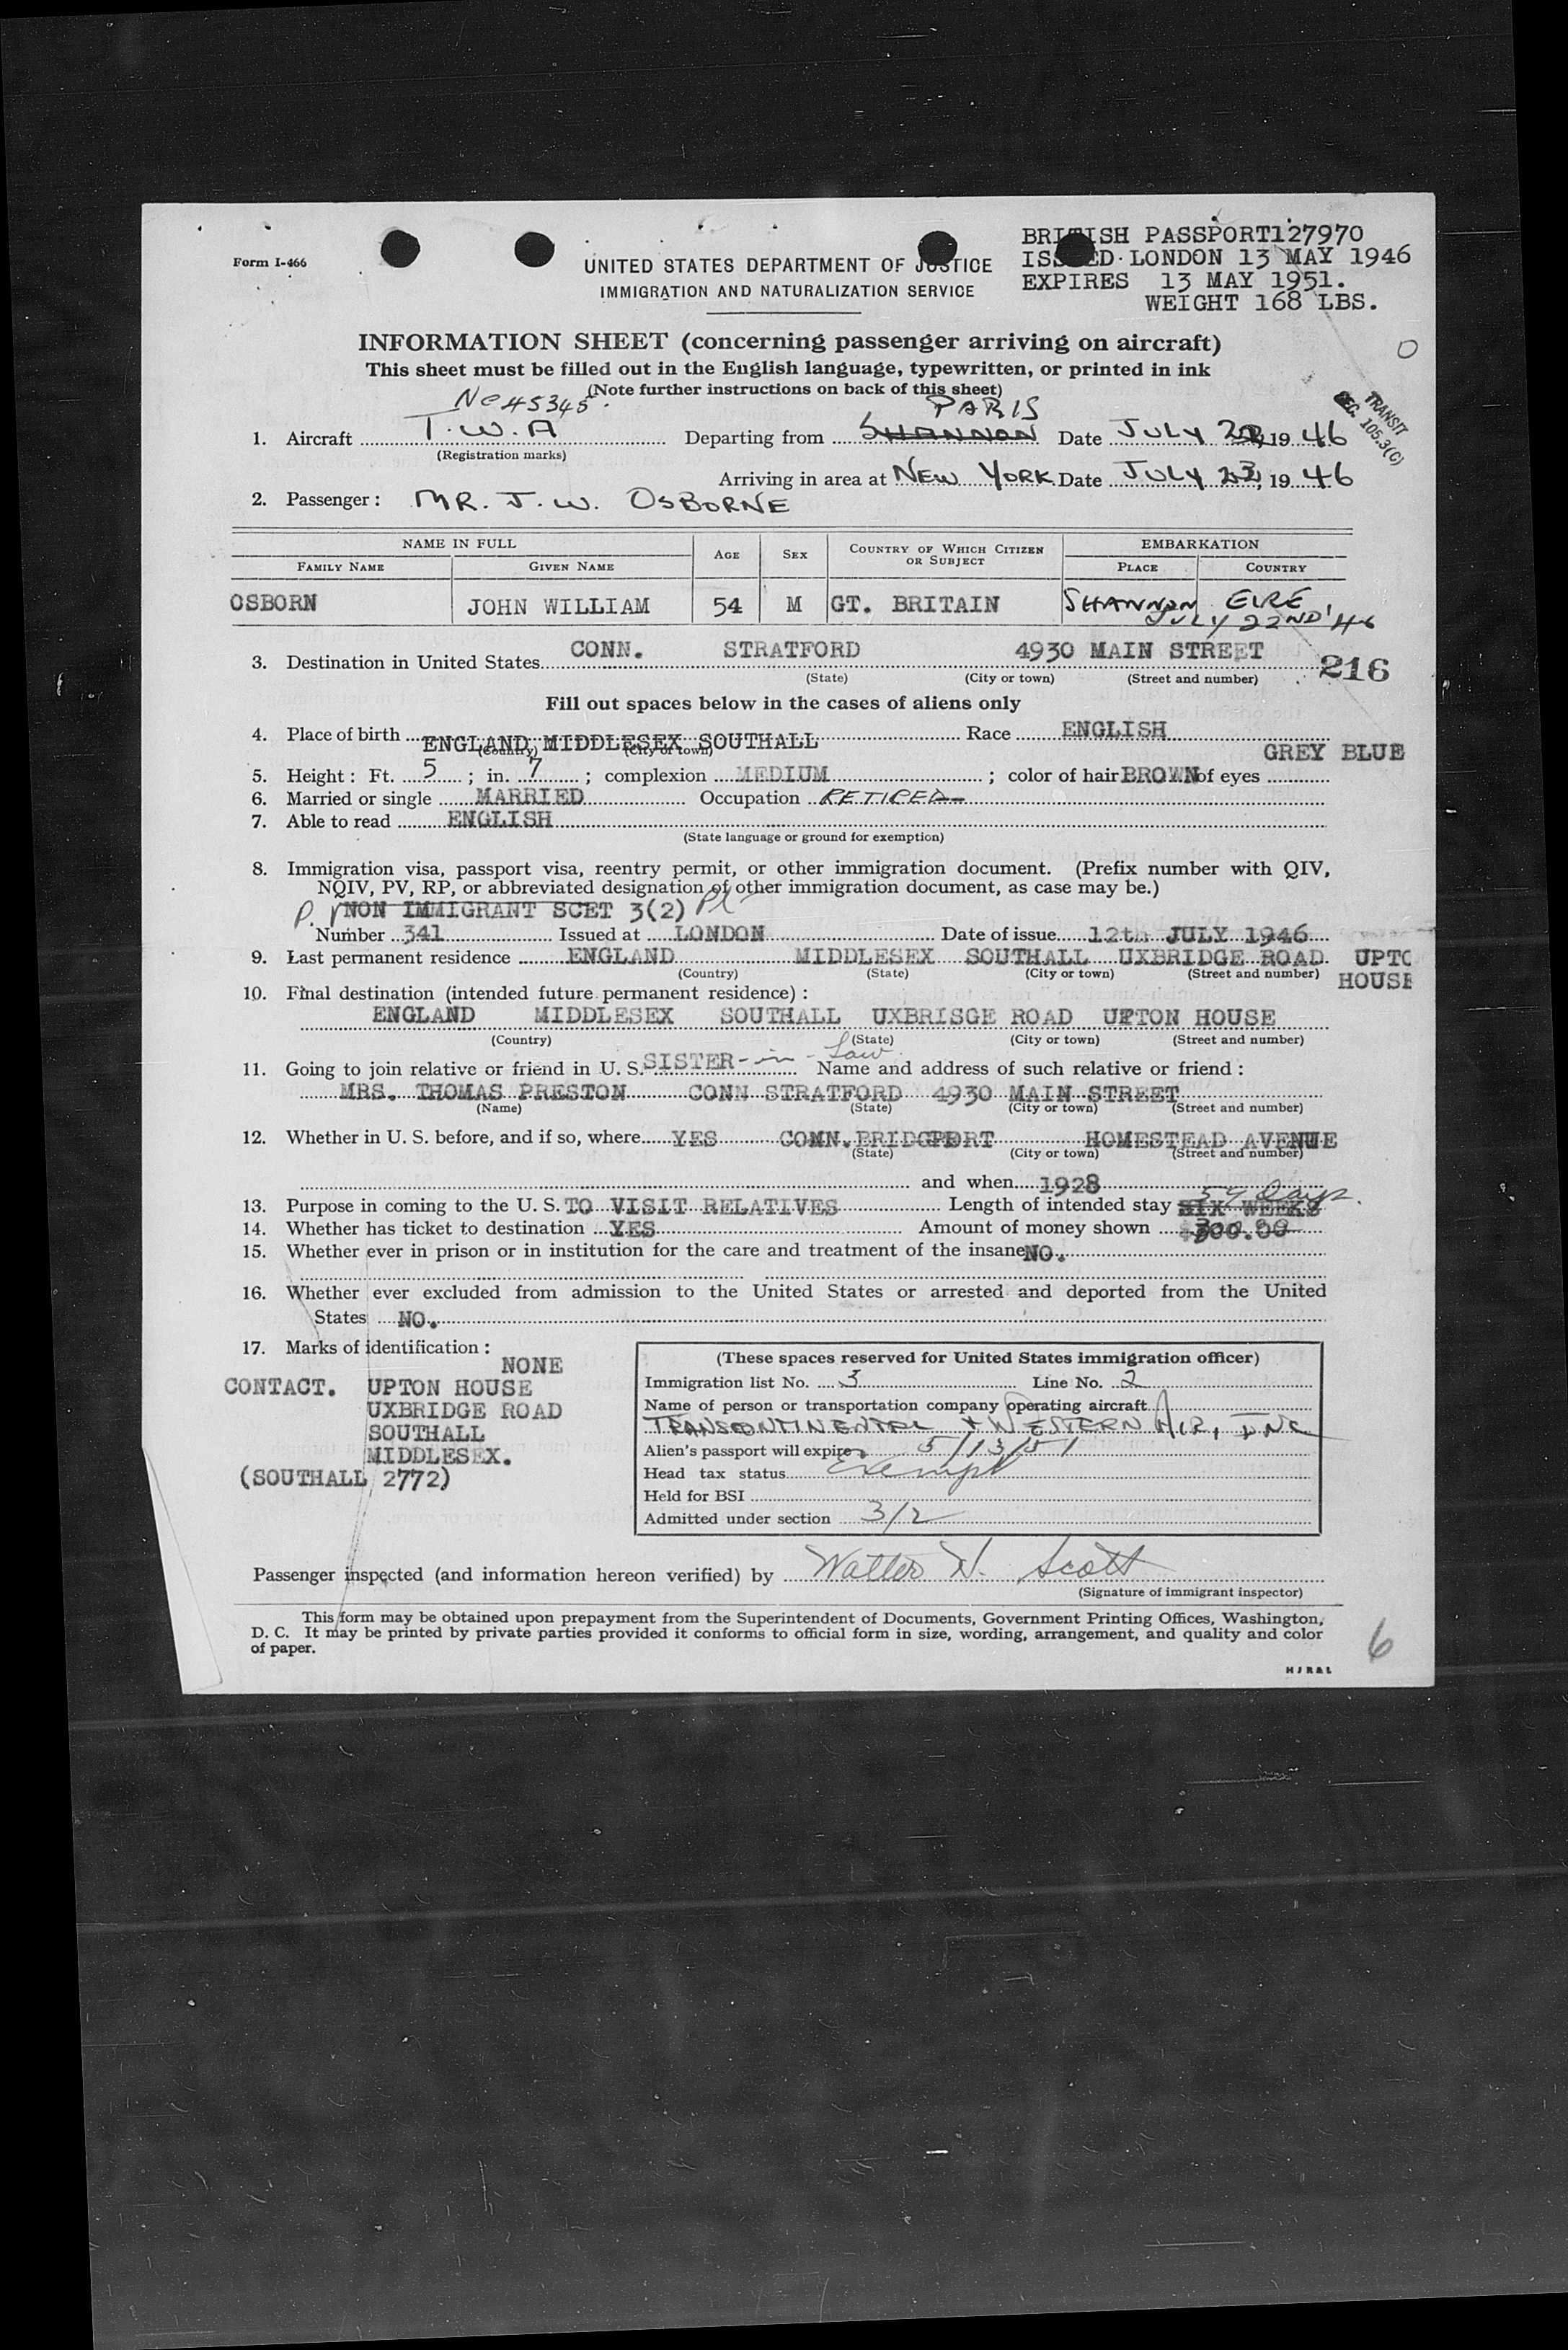 BRITISH PASSPORT127970
ISSUED LONDON 13 MAY 1946
EXPIRES 13 MAY 1951.
WEIGHT 168 LBS.
Form I-466
UNITED STATES DEPARTMENT OF JUSTICE
IMMIGRATION AND NATURALIZATION SERVICE
INFORMATION SHEET (concerning passenger arriving on aircraft)
O
This sheet must be filled out in the English language, typewritten, or printed in ink
(Note further instructions on back of this sheet)
TRANSIT
SEC. 105.3(C)
Nc 45345
PARIS
1. Aircraft T.W.A Departing from SHANNON Date JULY 22, 1946
(Registration marks)
Arriving in area at NEW YORK Date JULY 23, 1946
2. Passenger: MR. J. W. OSBORNE
NAME IN FULL AGE SEX COUNTRY OF WHICH CITIZEN OR SUBJECT EMBARKATION
FAMILY NAME GIVEN NAME PLACE COUNTRY
OSBORN JOHN WILLIAM 54 M GT. BRITAIN SHANNON EIRE
JULY 22ND '46
3. Destination in United States CONN. STRATFORD 4930 MAIN STREET 216
(State) (City or town) (Street and number)
Fill out spaces below in the cases of aliens only
4. Place of birth ENGLAND MIDDLESEX SOUTHALL Race ENGLISH
(Country) (City or town)
GREY BLUE
5. Height: Ft. 5; in. 7; complexion MEDIUM; color of hair BROWN of eyes
6. Married or single MARRIED Occupation RETIRED
7. Able to read ENGLISH
(State language or ground for exemption)
8. Immigration visa, passport visa, reentry permit, or other immigration document. (Prefix number with QIV,
NQIV, PV, RP, or abbreviated designation of other immigration document, as case may be.)
P.V NON IMMIGRANT SCET 3(2)
Number 341 Issued at LONDON Date of issue 12th JULY 1946
9. Last permanent residence ENGLAND MIDDLESEX SOUTHALL UXBRIDGE ROAD UPTO
(Country) (State) (City or town) (Street and number) HOUSE
10. Final destination (intended future permanent residence):
ENGLAND MIDDLESEX SOUTHALL UXBRISGE ROAD UPTON HOUSE
(Country) (State) (City or town) (Street and number)
11. Going to join relative or friend in U. S. SISTER-in-Law Name and address of such relative or friend:
MRS. THOMAS PRESTON CONN STRATFORD 4930 MAIN STREET
(Name) (State) (City or town) (Street and number)
12. Whether in U. S. before, and if so, where YES CONN. BRIDGPORT HOMESTEAD AVENUE
(State) (City or town) (Street and number)
and when 1928
57 Days.
13. Purpose in coming to the U. S. TO VISIT RELATIVES Length of intended stay SIX WEEKS
14. Whether has ticket to destination YES Amount of money shown $300.00
15. Whether ever in prison or in institution for the care and treatment of the insane NO.
16. Whether ever excluded from admission to the United States or arrested and deported from the United
States NO.
17. Marks of identification:
NONE
CONTACT. UPTON HOUSE
UXBRIDGE ROAD
SOUTHALL
MIDDLESEX.
(SOUTHALL 2772)
(These spaces reserved for United States immigration officer)
Immigration list No. 3 Line No. 2
Name of person or transportation company operating aircraft
TRANSCONTINENTAL & WESTERN AIR, INC
Alien's passport will expire 5/13/51
Head tax status Exempt
Held for BSI
Admitted under section 3/2
Passenger inspected (and information hereon verified) by Walter W. Scott
(Signature of immigrant inspector)
This form may be obtained upon prepayment from the Superintendent of Documents, Government Printing Offices, Washington,
D. C. It may be printed by private parties provided it conforms to official form in size, wording, arrangement, and quality and color
of paper.
6
HJR&L